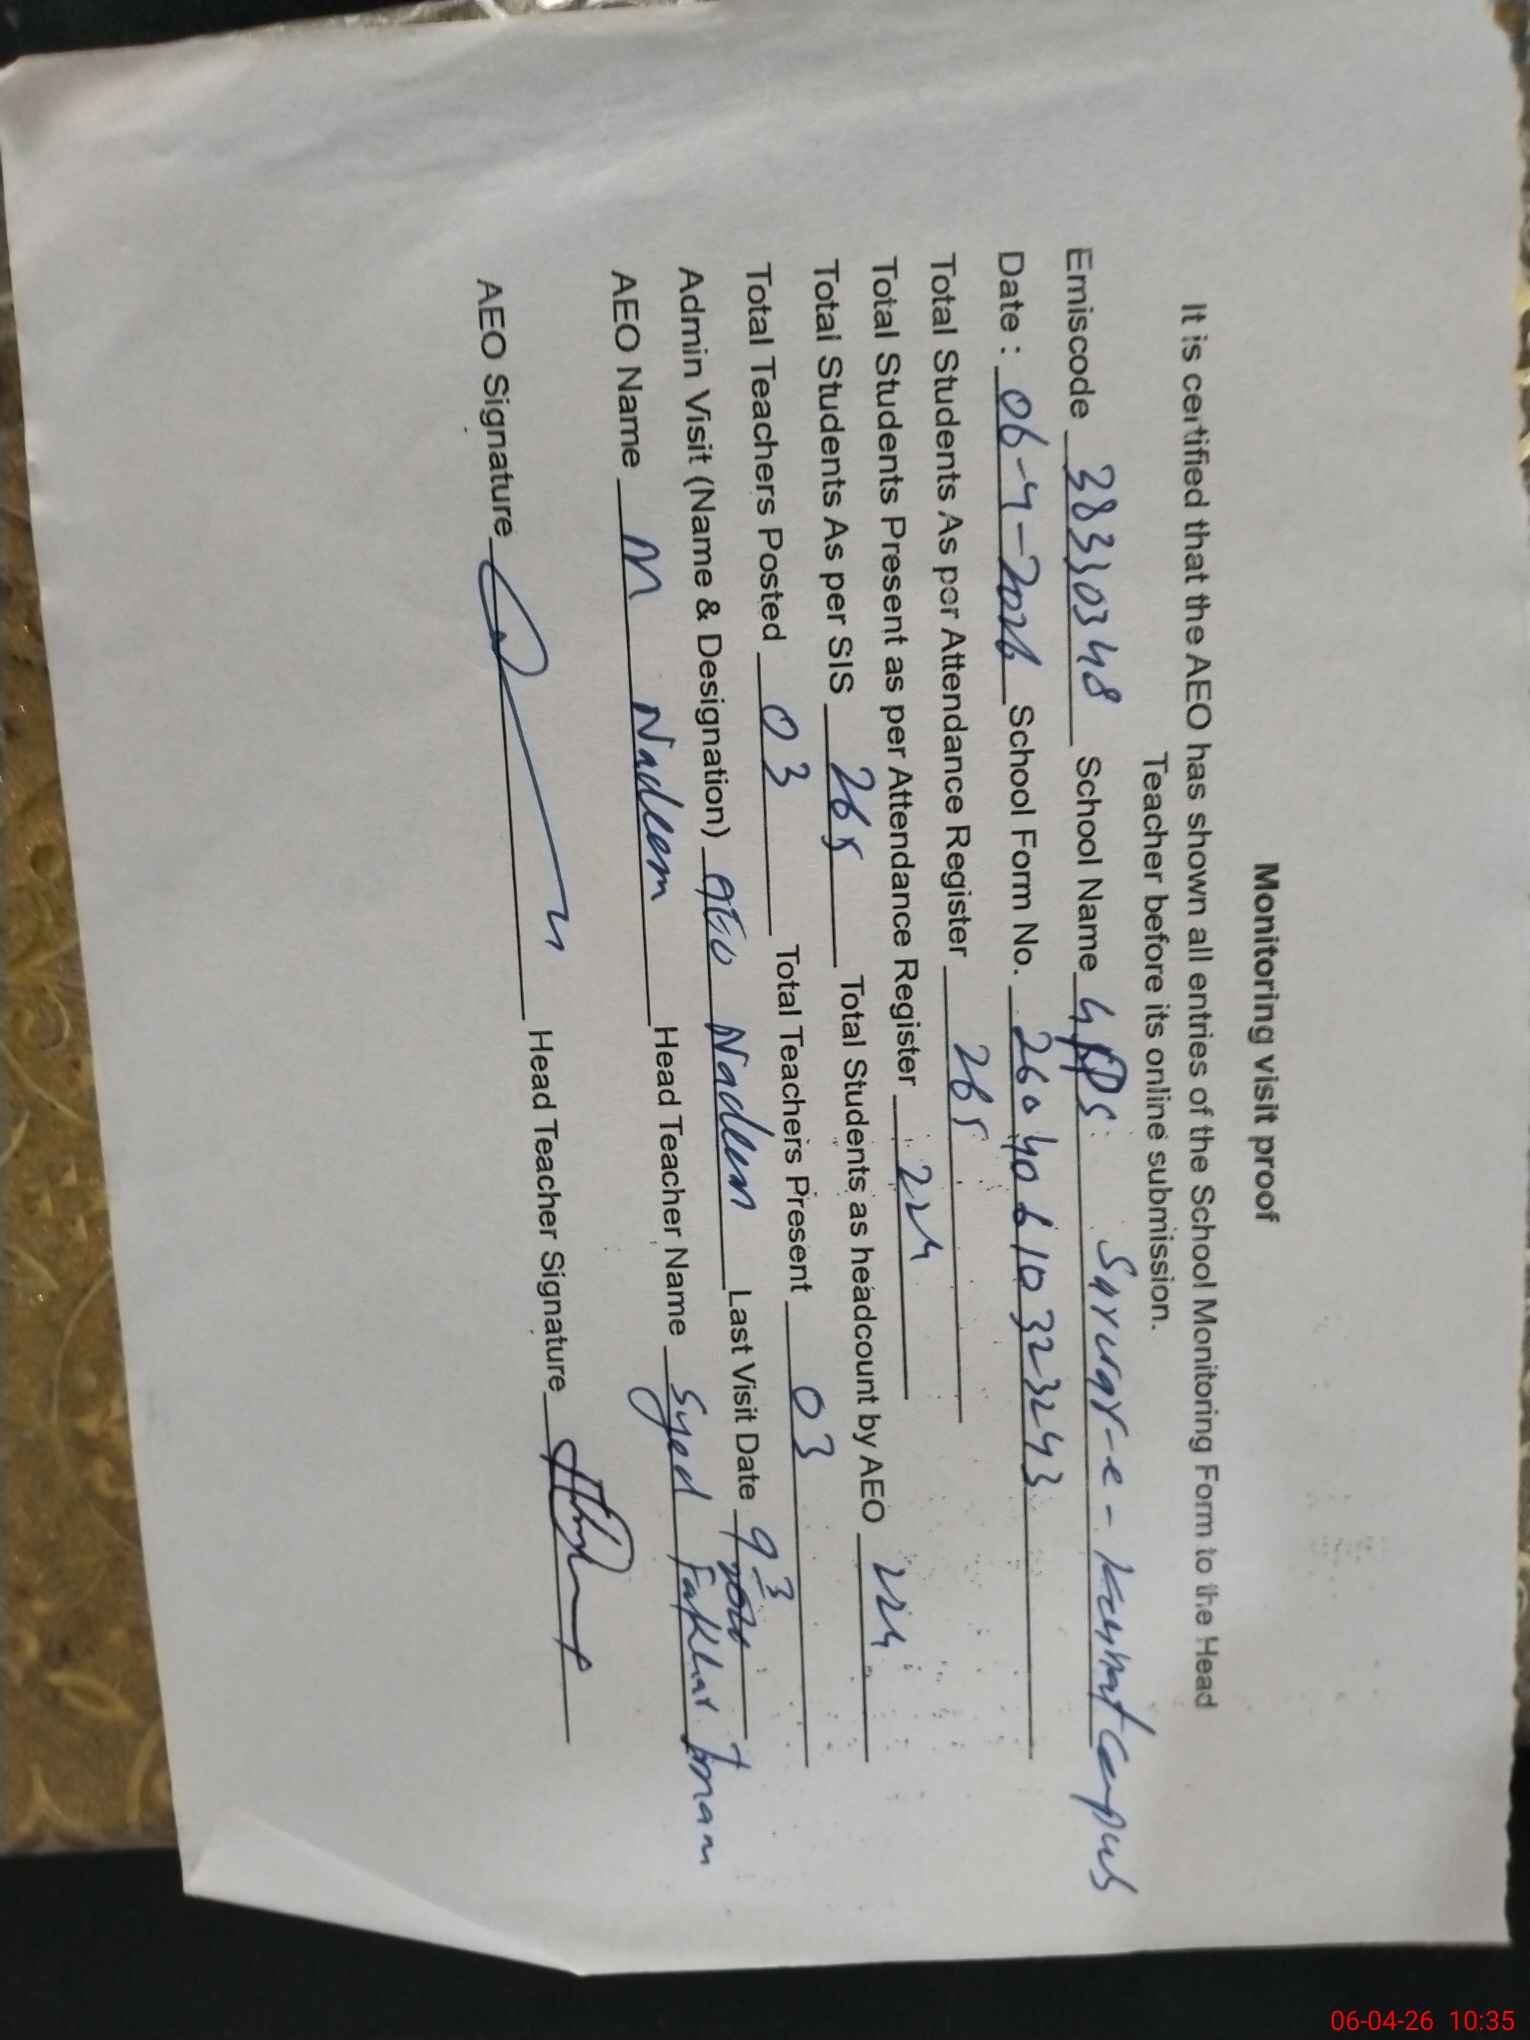 Monitoring visit proof
It is certified that the AEO has shown all entries of the School Monitoring Form to the Head
Teacher before its online submission.
Emiscode 38330348 School Name GPS Sarwar-e-Kaynat Campus
Date : 06-4-2026 School Form No. 26040610323243
Total Students As per Attendance Register 265
Total Students Present as per Attendance Register 224
Total Students As per SIS 265 Total Students as headcount by AEO 224
Total Teachers Posted 03 Total Teachers Present 03
Admin Visit (Name & Designation) AEO Nadeem Last Visit Date 9 3
AEO Name M Nadeem Head Teacher Name Syed Fakhar Imam
AEO Signature Head Teacher Signature
06-04-26 10:35